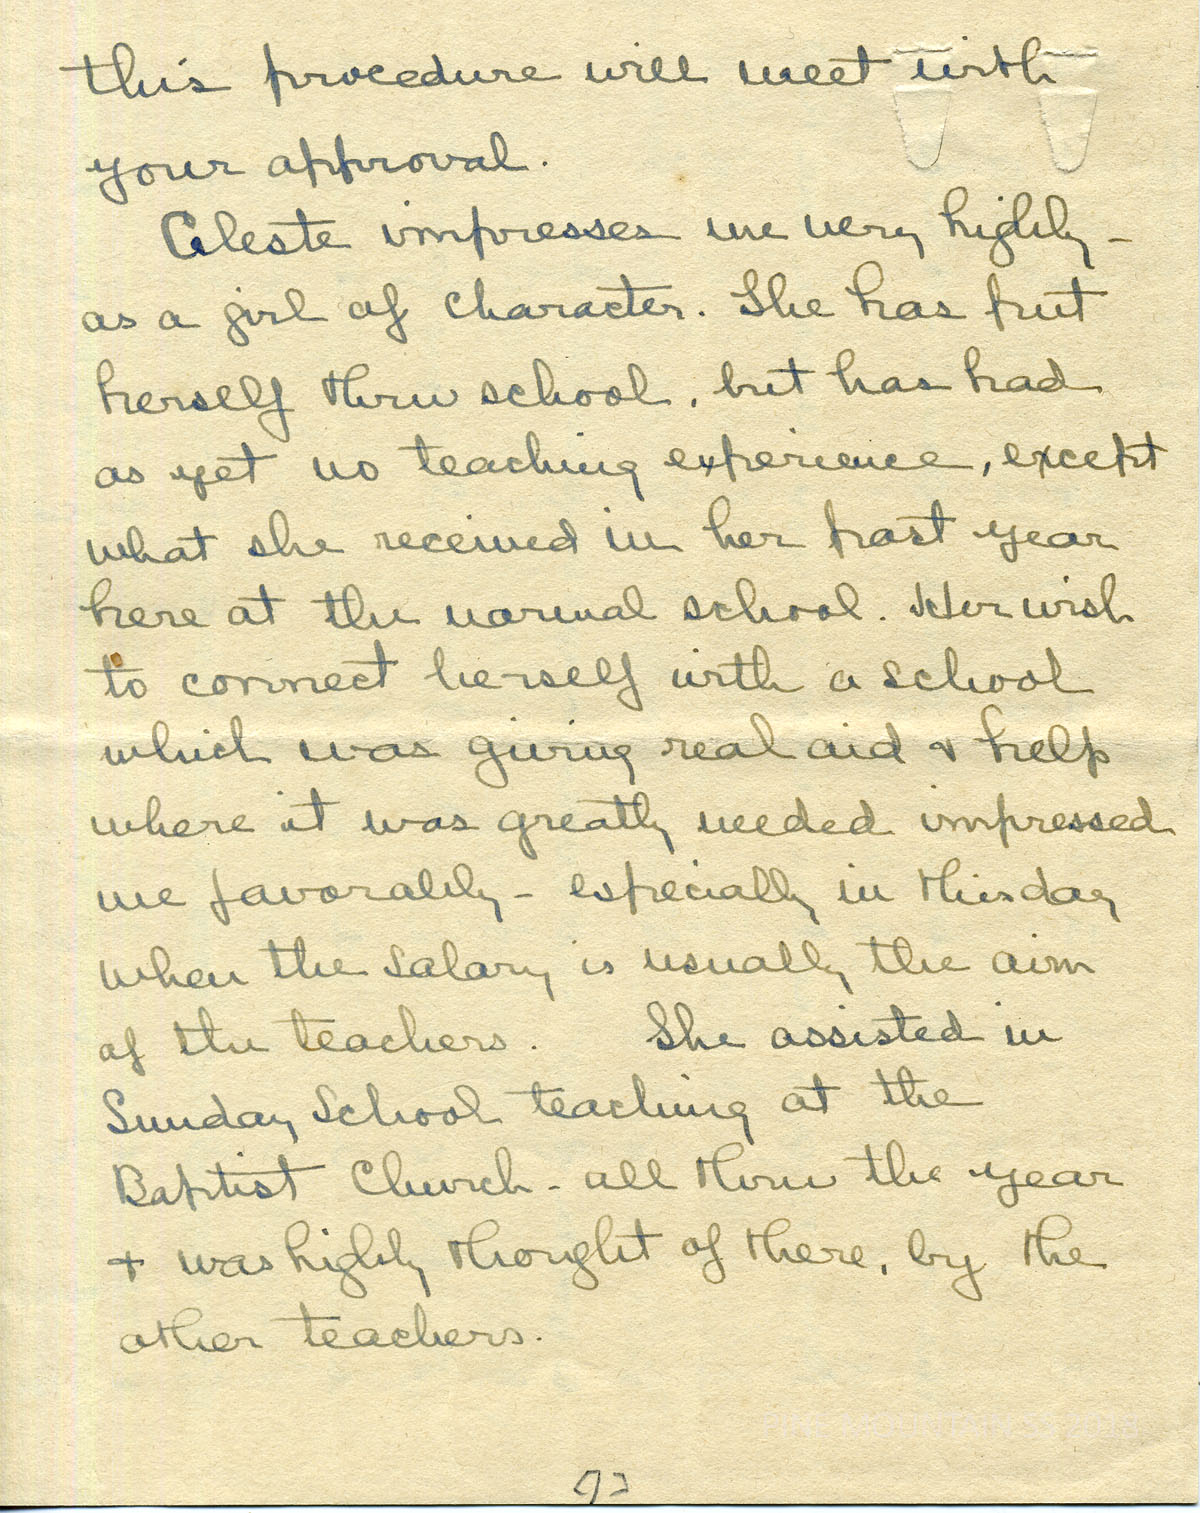 this procedure will meet with
your approval.
Celeste impresses me very highly -
as a girl of character. She has put
herself thru school, but has had
as yet no teaching experience, except
what she received in her past year
here at the normal school. Her wish
to connect herself with a school
which was giving real aid & help
where it was greatly needed impressed
me favorably - especially in this day
when the salary is usually the aim
of the teachers. She assisted in
Sunday School teaching at the
Baptist Church - all thru the year
& was highly thought of there, by the
other teachers.